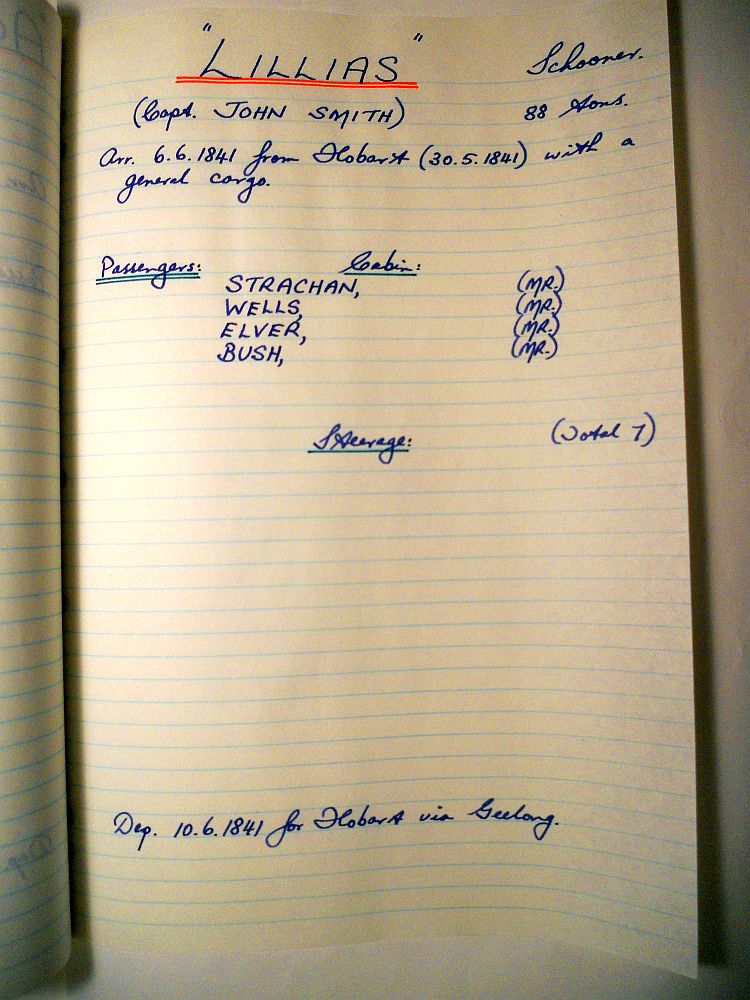 "LILLIAS" Schooner.
(Capt. JOHN SMITH) 88 tons.
Arr. 6.6.1841 from Hobart (30.5.1841) with a
general cargo.
Passengers: Cabin:
STRACHAN, (MR.)
WELLS, (MR.)
ELVER, (MR.)
BUSH, (MR.)
Steerage: (Total 7)
Dep. 10.6.1841 for Hobart via Geelong.